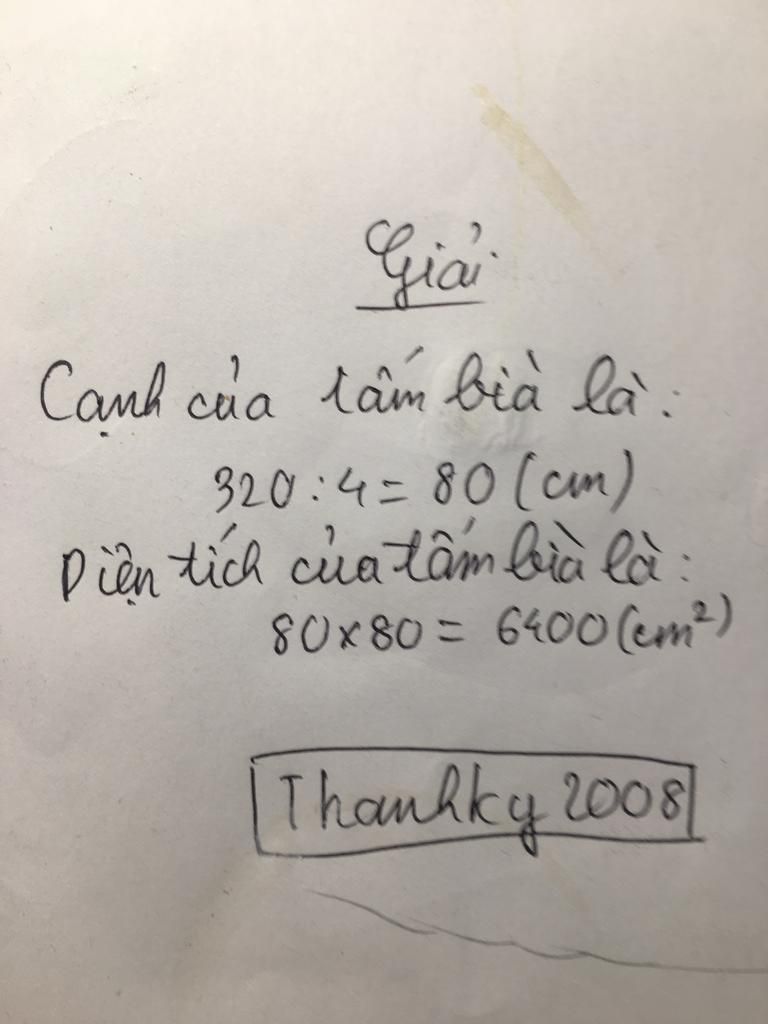 Giải
Cạnh của tấm bià là:
320:4= 80 (cm)
Diện tích của tấm bià là:
80x80= 6400(cm²)
Thanhky 2008